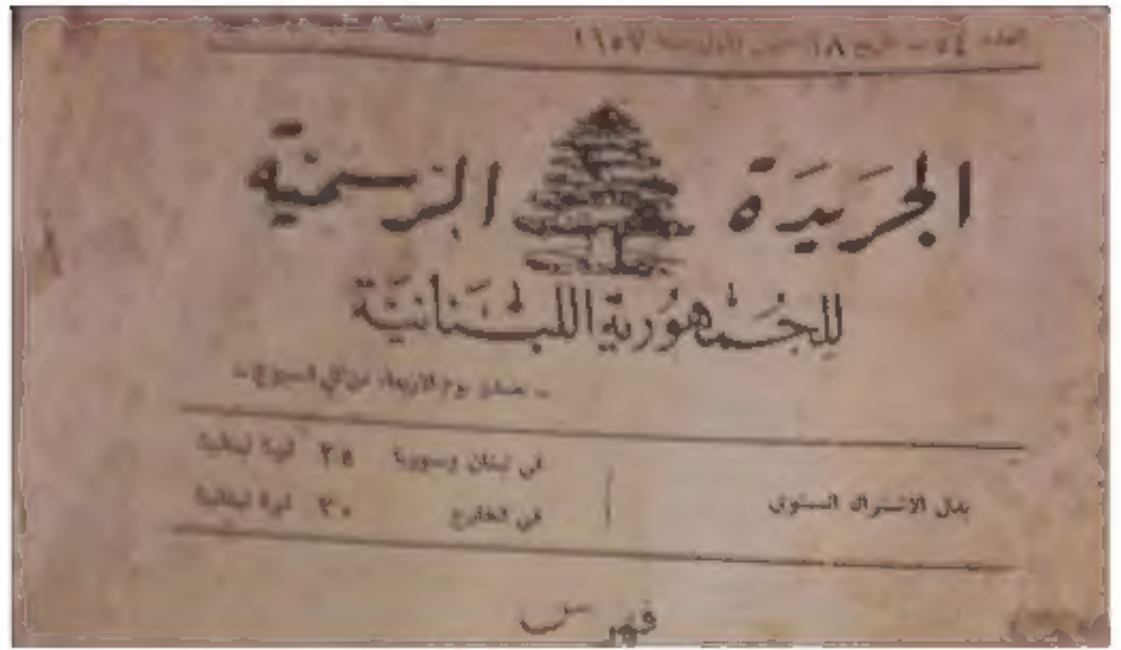 العدد ٥٤ – تاريخ ١٨ كانون الاول سنة ١٩٥٧
الجَريَدَة الرّسميّة
للجُمهُوريّة اللبنَانيَّة
– تصدر يوم الاربعاء من كل اسبوع –
بدل الاشتراك السنوي
في لبنان وسوريا ٢٥ ليرة لبنانية
في الخارج ٣٠ ليرة لبنانية
فهرس